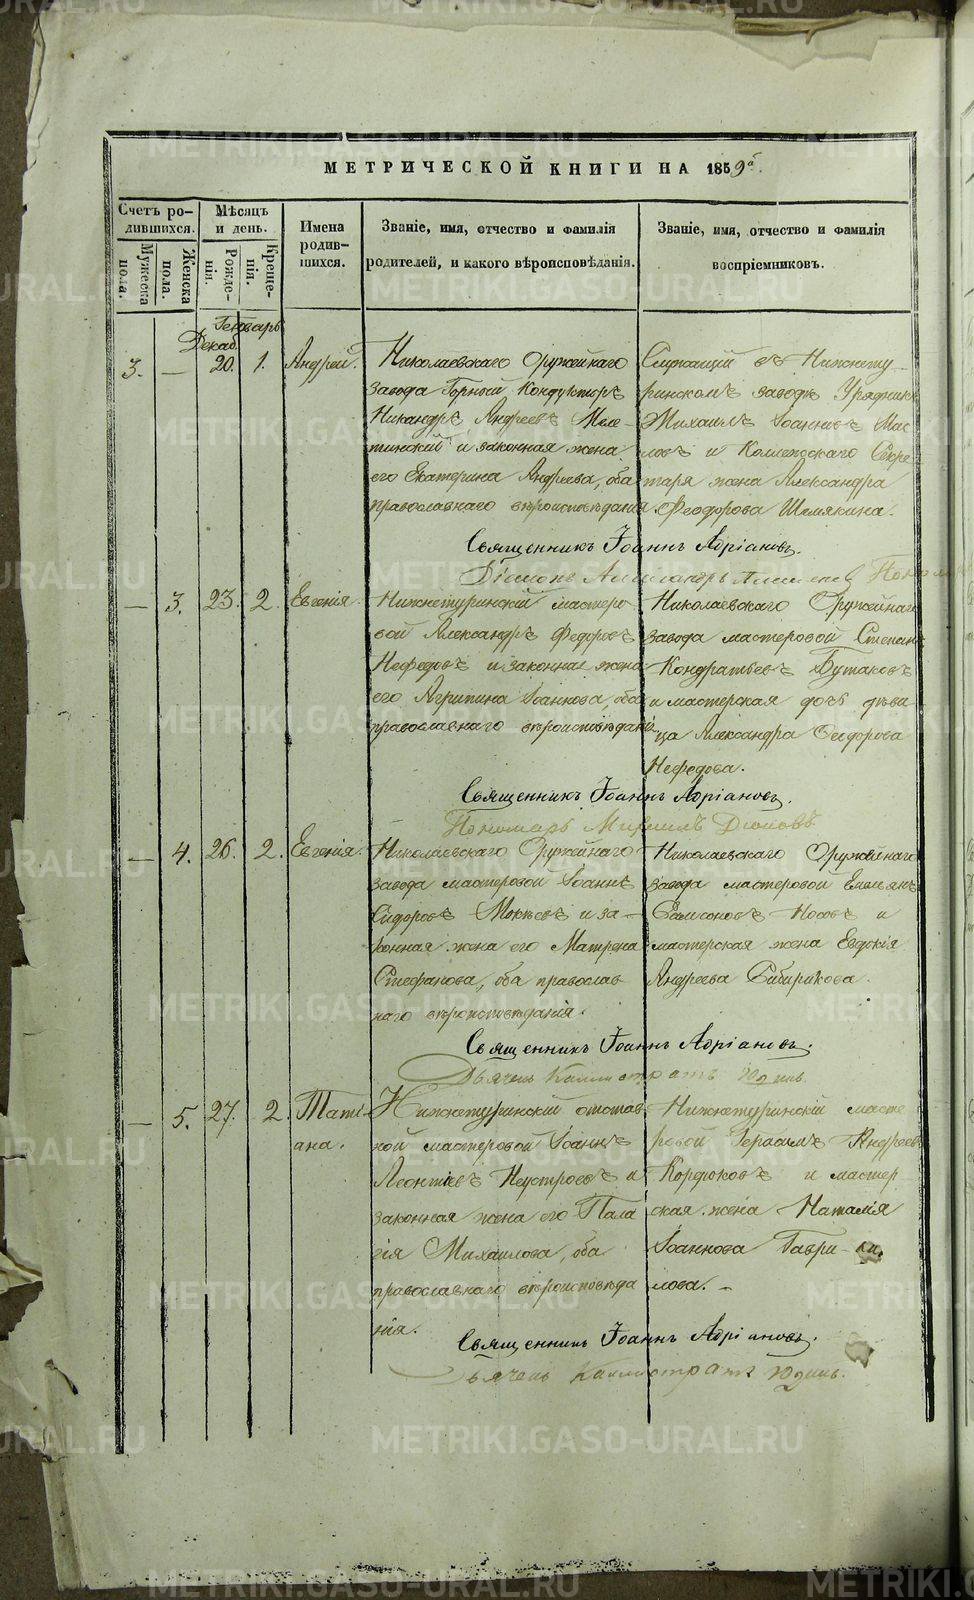 МЕТРИЧЕСКОЙ КНИГИ НА 1859й.
Счетъ ро-
дившихся.
Мужеска
пола.
Женска
пола.
Мѣсяцъ
и день.
Рожде-
нія.
Креще-
нія.
Имена
родив-
шихся.
Званіе, имя, отчество и фамилія
родителей, и какого вѣроисповѣданія.
Званіе, имя, отчество и фамилія
воспріемниковъ.
Генварь
Декаб.
3. — 20. 1. Андрей.
Николаевскаго Оружейнаго
завода Горный Кондукторъ
Никандръ Андреевъ Меле-
тинский и законная жена
его Екатерина Андреева, оба
православнаго вѣроисповѣдания
Служащий въ Нижнету-
ринскомъ заводѣ Урядникъ
Михаилъ Іоанновъ Мас-
ловъ и Коллежскаго Секре-
таря жена Александра
Феодорова Шемякина.
Священникъ Іоаннъ Адріановъ.
Діаконъ Александръ
— 3. 23. 2. Евгенія.
Нижнетуринскій мастеро-
вой Александръ Федоровъ
Нефедовъ и законная жена
его Агрипина Іоаннова, оба
православнаго вѣроисповѣданія
Николаевскаго Оружейнаго
завода мастеровой Степанъ
Кондратьевъ Бутаковъ
и мастерская дочь дѣви-
ца Александра Феодорова
Нефедова.
Священникъ Іоаннъ Адріановъ.
Пономарь Михаилъ
— 4. 26. 2. Евгенія.
Николаевскаго Оружейнаго
завода мастеровой Іоаннъ
Сидоровъ Мокѣевъ и за-
конная жена его Матрена
Стефанова, оба православ
наго вѣроисповѣданія.
Николаевскаго Оружейнаго
завода мастеровой Емельянъ
Самсоновъ Носовъ и
мастерская жена Евдокія
Андреева Сибирякова.
Священникъ Іоаннъ Адріановъ.
Дьячекъ Каллистратъ Юдинъ.
— 5. 27. 2. Тати-
ана.
Нижнетуринскій отстав
ной мастеровой Іоаннъ
Леонтіевъ Неустроевъ и
законная жена его Пала
гія Михаилова, оба
православнаго вѣроисповѣда
нія.
Нижнетуринскій масте
ровой Герасимъ Андреевъ
Кордюковъ и мастер
ская жена Наталія
Іоаннова Гаври-
лова. –
Священникъ Іоаннъ Адріановъ.
Дьячекъ Каллистратъ Юдинъ.
METRIKI.GASO-URAL.RU